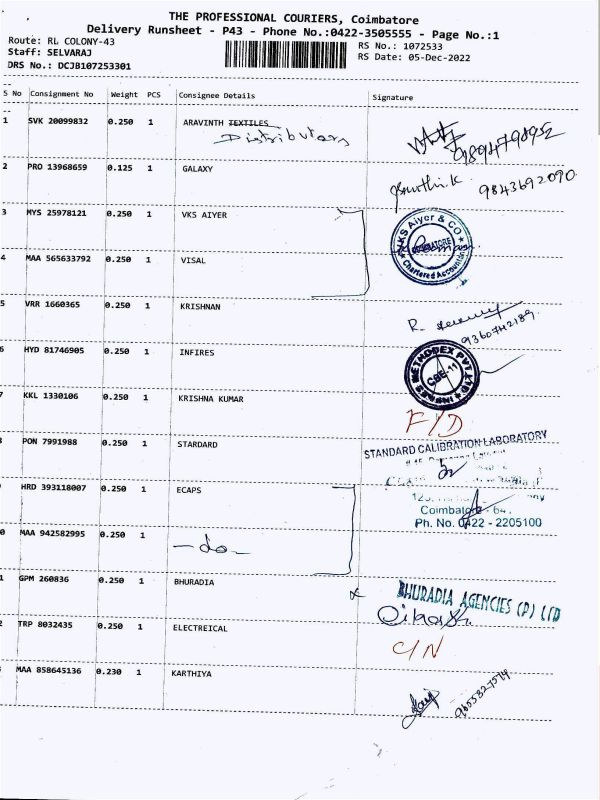 THE PROFESSIONAL COURIERS, Coimbatore
Delivery Runsheet - P43 - Phone No.:0422-3505555 - Page No.:1
Route: RL COLONY-43
RS No.: 1072533
Staff: SELVARAJ
RS Date: 05-Dec-2022
DRS No.: DCJB107253301
S No Consignment No Weight PCS Consignee Details Signature
1 SVK 20099832 0.250 1 ARAVINTH TEXTILES
Distributors
9894479892
2 PRO 13968659 0.125 1 GALAXY
9843692090
3 MYS 25978121 0.250 1 VKS AIYER
VKS Aiyer & CO
COIMBATORE
Chartered Accountants
4 MAA 565633792 0.250 1 VISAL
5 VRR 1660365 0.250 1 KRISHNAN
R.
9360742189
6 HYD 81746905 0.250 1 INFIRES
METHODEX PVT
CBE-11
7 KKL 1330106 0.250 1 KRISHNA KUMAR
F/D
8 PON 7991988 0.250 1 STARDARD
STANDARD CALIBRATION LABORATORY
9 HRD 393118007 0.250 1 ECAPS
Coimbatore - 641
Ph. No. 0422 - 2205100
0 MAA 942582995 0.250 1 -do-
1 GPM 260836 0.250 1 BHURADIA
BHURADIA AGENCIES (P) LTD
2 TRP 8032435 0.250 1 ELECTREICAL
C/N
MAA 858645136 0.230 1 KARTHIYA
9655827574